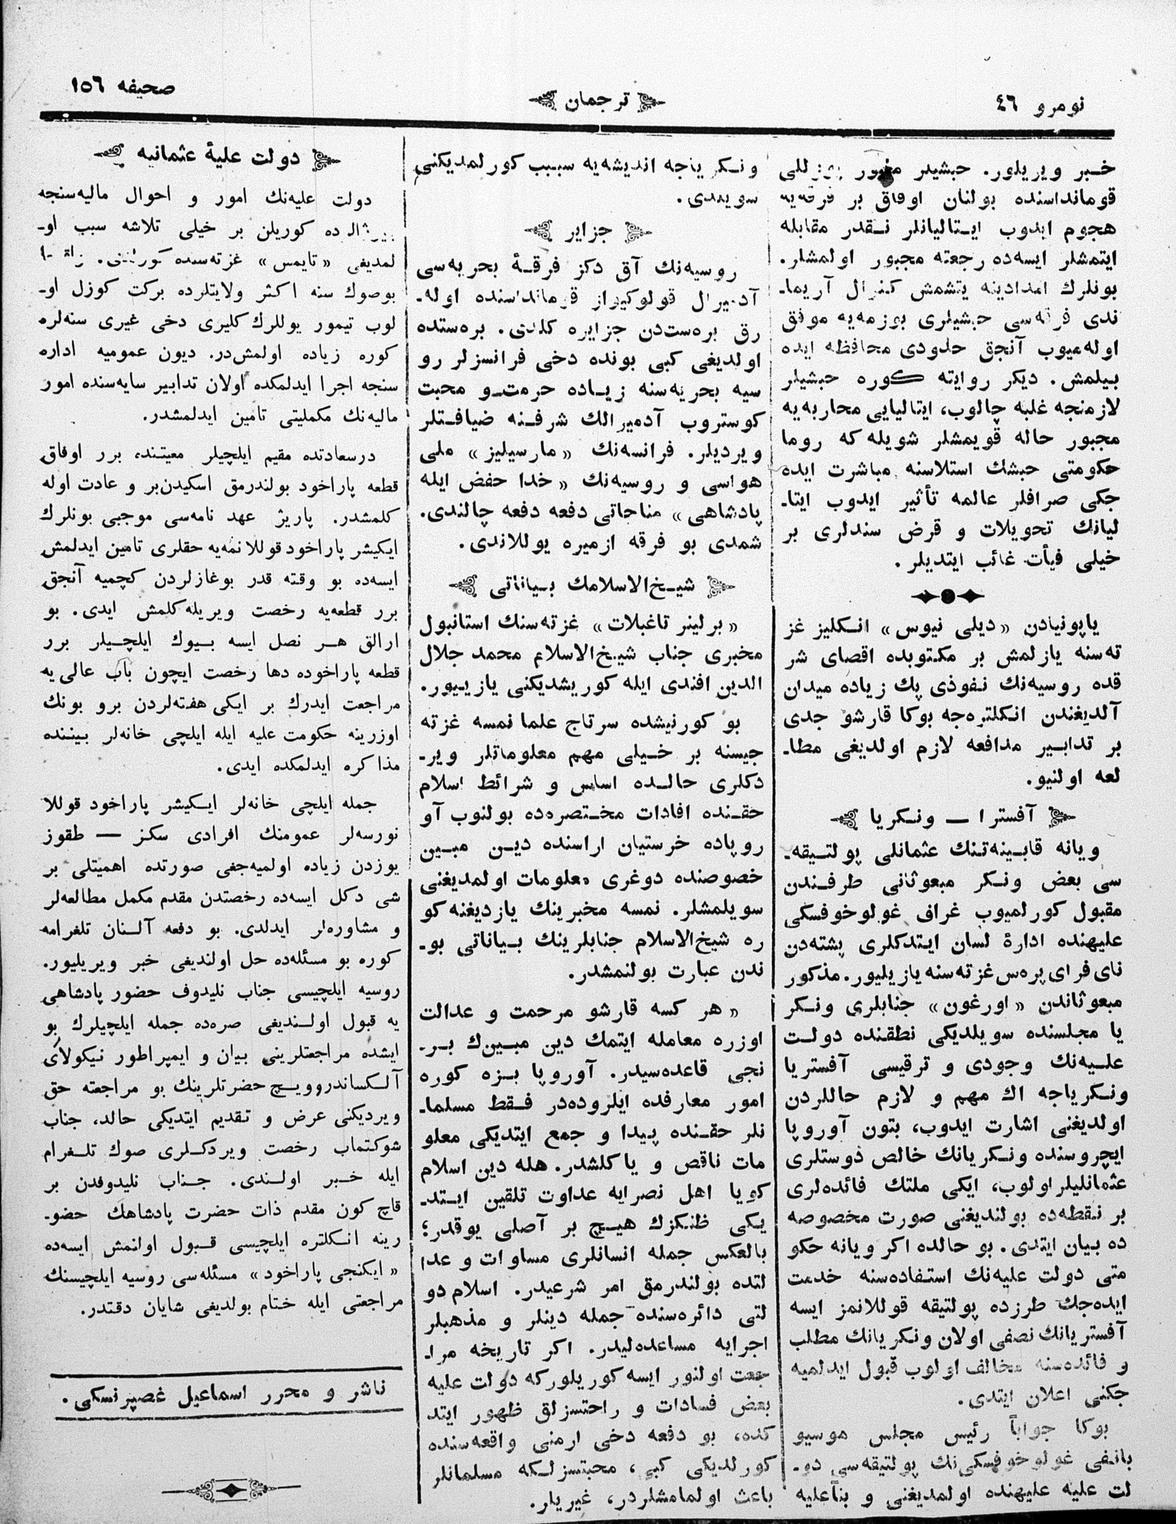 نومرو ٤٦
ترجمان
صحيفه ١٥٦
خبر ويريلور. حبشيلر
قومانداسنده بولنان اوفاق بر فرقه‌يه
هجوم ايدوب ايتاليانلر نقدر مقابله
ايتمشلر ايسه‌ده رجعته مجبور اولمشلر.
بونلرك امدادينه يتشمش كنرال آريمـ
ندى فرقه‌سى حبشيلرى بوزمه‌يه موفق
اوله‌ميوب آنجق حدودى محافظه ايده
بيلمش. ديكر روايته كوره حبشيلر
لازمنجه غلبه چالوب، ايتاليايى محاربه‌يه
مجبور حاله قويمشلر شويله‌كه روما
حكومتى حبشك استلاسنه مباشرت ايده
جكى صرافلر عالمه تأثير ايدوب ايتاـ
ليانك تحويلات و قرض سندلرى بر
خيلى فيأت غائب ايتديلر.
ياپونيادن «ديلى نيوس» انكليز غز
ته‌سنه يازلمش بر مكتوبده اقصاى شر
قده روسيه‌نك نفوذى پك زياده ميدان
آلديغندن انكلتره‌جه بوكا قارشو جدى
بر تدابير مدافعه لازم اولديغى مطاـ
لعه اولنيو.
آفسترا — ونكريا
ويانه قابينه‌تنك عثمانلى پولتيقه‌ـ
سى بعض ونكر مبعوثانى طرفندن
مقبول كورلميوب غراف غولوخوفسكى
عليهنده ادارهٔ لسان ايتدكلرى پشته‌دن
ناى فراى پره‌س غزته‌سنه يازيليور. مذكور
مبعوثاندن «اورغون» جنابلرى ونكر
يا مجلسنده سويلديكى نطقنده دولت
عليه‌نك وجودى و ترقيسى آفستريا
ونكرياجه اك مهم و لازم حاللردن
اولديغنى اشارت ايدوب، بتون آوروپا
ايچروسنده ونكريانك خالص دوستلرى
عثمانليلر اولوب، ايكى ملتك فائده‌لرى
بر نقطه‌ده بولنديغنى صورت مخصوصه
ده بيان ايتدى. بو حالده اكر ويانه حكو
متى دولت عليه‌نك استفاده‌سنه خدمت
ايده‌جك طرزده پولتيقه قوللانمز ايسه
آفستريانك نصفى اولان ونكريانك مطلب
و فائده‌سنه مخالف اولوب قبول ايدلميه
جكنى اعلان ايتدى.
بوكا جواباً رئيس مجلس موسيو
بانفى غولوخوفسكى‌نك پولتيقه‌سى دوـ
لت عليه عليهنده اولمديغنى و بناًعليه
ونكرياجه انديشه‌يه سبب كورلمديكنى
سويلدى.
جزاير
روسيه‌نك آق دكز فرقهٔ بحريه‌سى
آدميرال قولوكيراز قومانداسنده اوله‌ـ
رق بره‌ست‌دن جزايره كلدى. بره‌ستده
اولديغى كبى بونده دخى فرانسزلر رو
سيه بحريه‌سنه زياده حرمت و محبت
كوستروب آدميرالك شرفنه ضيافتلر
ويرديلر. فرانسه‌نك «مارسيليز» ملى
هواسى و روسيه‌نك «خدا حفض ايله
پادشاهى» مناجاتى دفعه دفعه چالندى.
شمدى بو فرقه ازميره يوللاندى.
شيخ‌الاسلامك بياناتى
«برلينر تاغبلات» غزته‌سنك استانبول
مخبرى جناب شيخ‌الاسلام محمد جلال
الدين افندى ايله كوريشديكنى يازيور.
بو كورنيشده سرتاج علما نمسه غزته
جيسنه بر خيلى مهم معلوماتلر ويرـ
دكلرى حالده اساس و شرائط اسلام
حقنده افادات مختصره‌ده بولنوب آو
روپاده خرستيان اراسنده دين مبين
خصوصنده دوغرى معلومات اولمديغنى
سويلمشلر. نمسه مخبرينك يازديغنه كو
ره شيخ‌الاسلام جنابلرينك بياناتى بوـ
ندن عبارت بولنمشدر.
«هر كسه قارشو مرحمت و عدالت
اوزره معامله ايتمك دين مبين‌ك برـ
نجى قاعده‌سيدر. آوروپا بزه كوره
امور معارفده ايلروده‌در فقط مسلماـ
نلر حقنده پيدا و جمع ايتديكى معلو
مات ناقص و ياكلشدر. هله دين اسلام
كويا اهل نصرايه عداوت تلقين ايتدـ
يكى ظنكزك هيچ بر آصلى يوقدر؛
بالعكس جمله انسانلرى مساوات و عدا
لتده بولندرمق امر شرعيدر. اسلام دو
لتى دائره‌سنده جمله دينلر و مذهبلر
اجرايه مساعده‌ليدر. اكر تاريخه مراـ
جعت اولنور ايسه كوريلوركه دولت عليه
بعض فسادات و راحتسزلق ظهور ايتد
كده، بو دفعه دخى ارمنى واقعه‌سنده
كورلديكى كبى، محبتسزلكه مسلمانلر
باعث اولمامشلردر، غيريلر.
دولت عليهٔ عثمانيه
دولت عليه‌نك امور و احوال ماليه‌سنجه
ده كوريلن بر خيلى تلاشه سبب اوـ
لمديغى «تايمس» غزته‌سنده
بوصوك سنه اكثر ولايتلرده بركت كوزل اوـ
لوب تيمور يوللرك كليرى دخى غيرى سنه‌لره
كوره زياده اولمش‌در. ديون عموميه اداره
سنجه اجرا ايدلمكده اولان تدابير سايه‌سنده امور
ماليه‌نك مكمليتى تامين ايدلمشدر.
درسعادتده مقيم ايلچيلر معيتنده برر اوفاق
قطعه پاراخود بولندرمق اسكيدن‌بر و عادت اوله
كلمشدر. پاريژ عهد نامه‌سى موجبى بونلرك
ايكيشر پاراخود قوللانمه‌يه حقلرى تامين ايدلمش
ايسه‌ده بو وقته قدر بوغازلردن كچميه آنجق
برر قطعه‌يه رخصت ويريله‌كلمش ايدى. بو
ارالق هر نصل ايسه بيوك ايلچيلر برر
قطعه پاراخوده دها رخصت ايچون باب عالى‌يه
مراجعت ايدرك بر ايكى هفته‌لردن برو بونك
اوزرينه حكومت عليه ايله ايلچى خانه‌لر بيننده
مذاكره ايدلمكده ايدى.
جمله ايلچى خانه‌لر ايكيشر پاراخود قوللا
نورسه‌لر عمومنك افرادى سكز — طقوز
يوزدن زياده اولميه‌جفى صورتده اهميتلى بر
شى دكل ايسه‌ده رخصتدن مقدم مكمل مطالعه‌لر
و مشاوره‌لر ايدلدى. بو دفعه آلنان تلغرامه
كوره بو مسئله‌ده حل اولنديغى خبر ويريليور.
روسيه ايلچيسى جناب نليدوف حضور پادشاهى
يه قبول اولنديغى صره‌ده جمله ايلچيلرك بو
ايشده مراجعتلرينى بيان و ايمپراطور نيكولاى
آلكساندروويچ حضرتلرينك بو مراجعته حق
ويرديكنى عرض و تقديم ايتديكى حالد، جناب
شوكتماب رخصت ويردكلرى صوك تلغرام
ايله خبر اولندى. جناب نليدوفدن بر
قاچ كون مقدم ذات حضرت پادشاهك حضوـ
رينه انكلتره ايلچيسى قبول اولنمش ايسه‌ده
«ايكنجى پاراخود» مسئله‌سى روسيه ايلچيسنك
مراجعتى ايله ختام بولديغى شايان دقتدر.
ناشر و محرر اسماعيل غصپرنسكى.